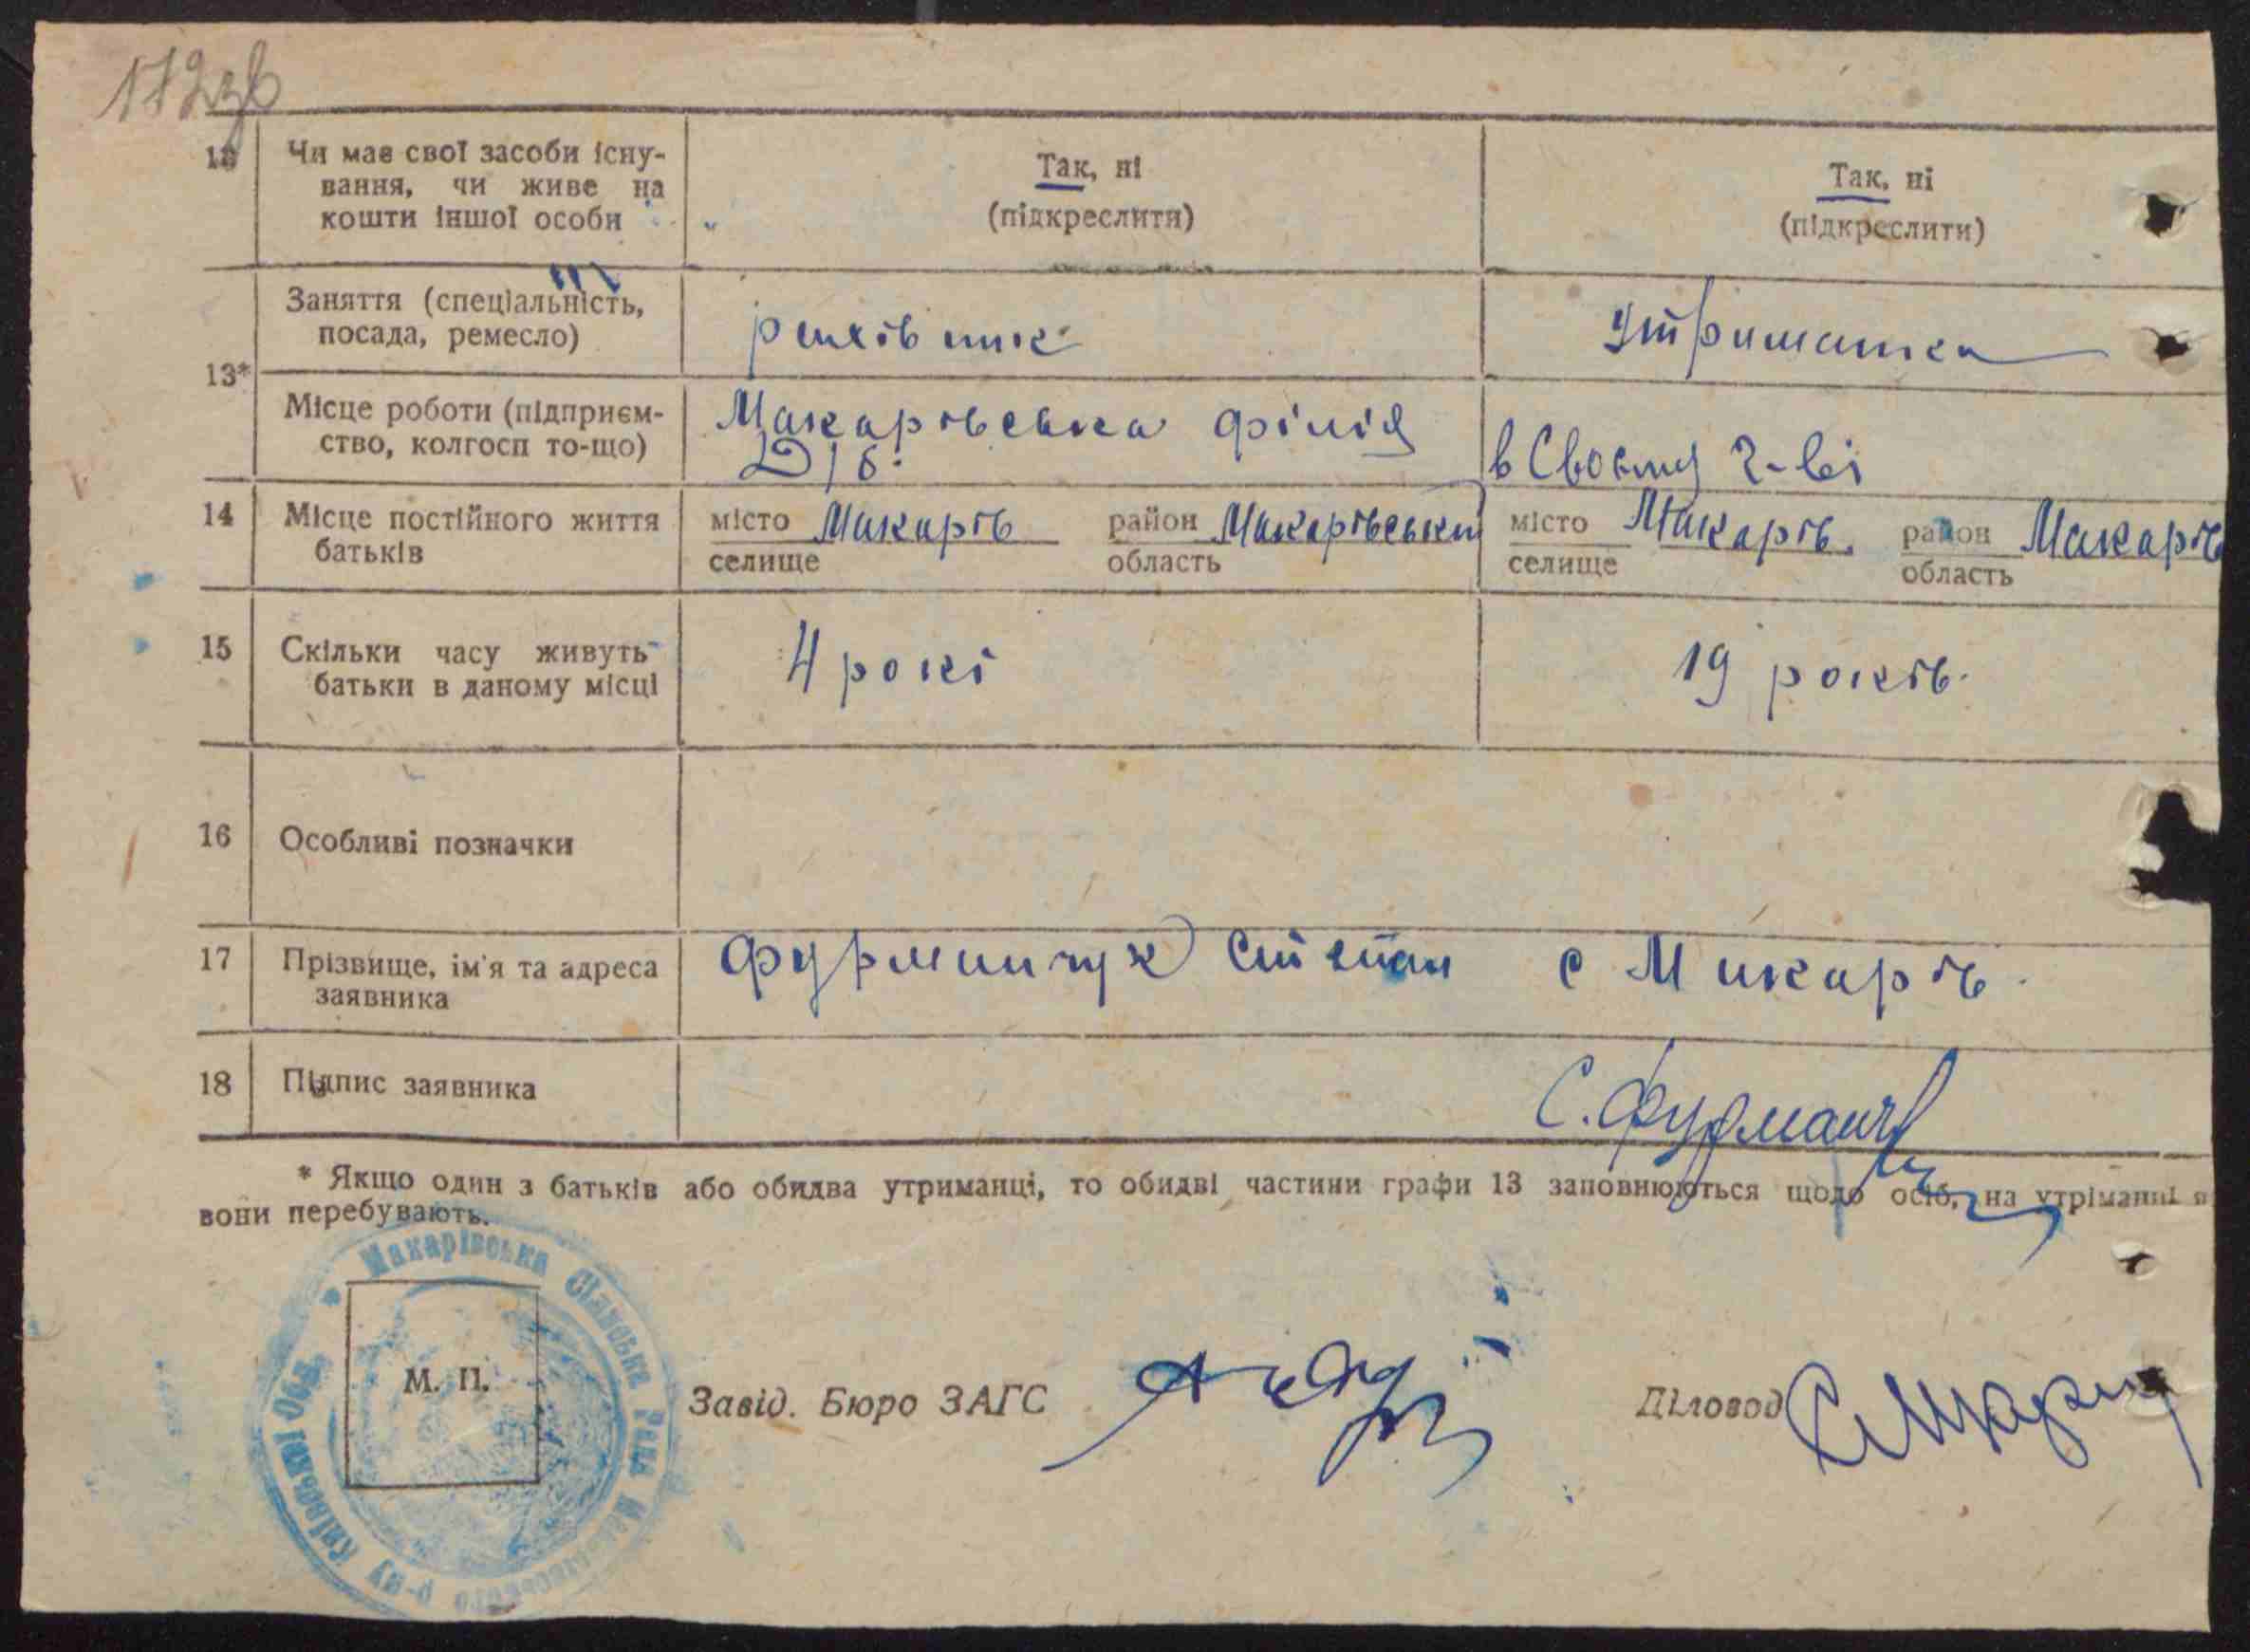 172зв
12 Чи має свої засоби існу-
вання, чи живе на
кошти іншої особи
Так, ні
(підкреслити)
Так, ні
(підкреслити)
13*
Заняття (спеціальність,
посада, ремесло)
рахівник
утриманка
Місце роботи (підприєм-
ство, колгосп то-що)
Макарівська філія
в своему г-ві
14 Місце постійного життя
батьків
місто Макарів район Макарівський
селище область
місто Макарів. район Макарів
селище область
15 Скільки часу живуть
батьки в даному місці
4 рокі
19 років.
16 Особливі позначки
17 Прізвище, ім'я та адреса
заявника
Фурманчук Степан с Макарів.
18 Підпис заявника
С. Фурманчук
* Якщо один з батьків або обидва утриманці, то обидві частини графи 13 заповнюються щодо осіб, на утріманні я
вони перебувають.
Макарівська Сільська Рада Макарівського р-ну Київської Обл.
М. П.
Завід. Бюро ЗАГС
Діловод